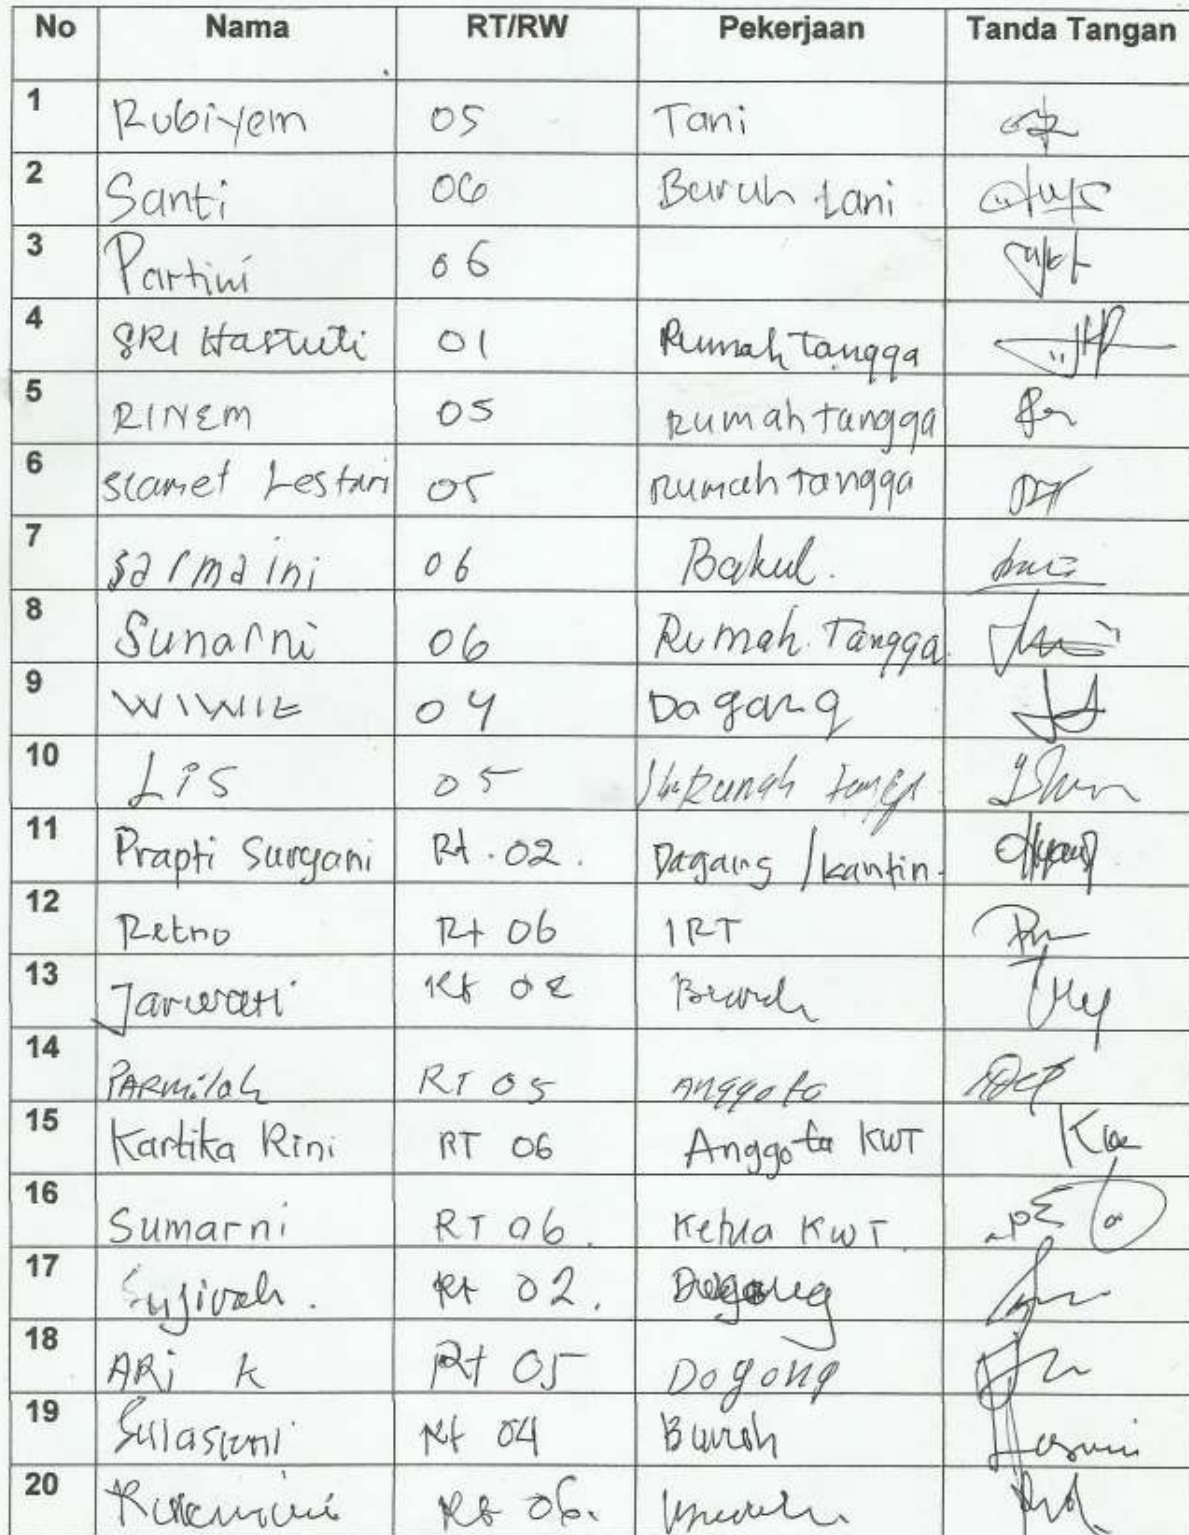 No Nama RT/RW Pekerjaan Tanda Tangan
1 Rubiyem 05 Tani
2 Santi 06 Buruh tani
3 Partini 06
4 SRI Hastuti 01 Rumah Tangga
5 RINEM 05 Rumah tangga
6 Slamet Lestari 05 Rumah tangga
7 Sarmaini 06 Bakul.
8 Sunarni 06 Rumah. Tangga.
9 WIWIK 04 Dagang
10 Lis 05
11 Prapti Suryani Rt. 02. Dagang / kantin.
12 Retno Rt 06 IRT
13 Jarwati Rt
14 PARMilah RT 05 Anggota
15 Kartika Rini RT 06 Anggota KWT
16 Sumarni RT 06. Ketua KWT.
17 Rt 02. Dagang
18 ARi K Rt 05 Dagang
19 Rt 04 Buruh
20 Rt 06.